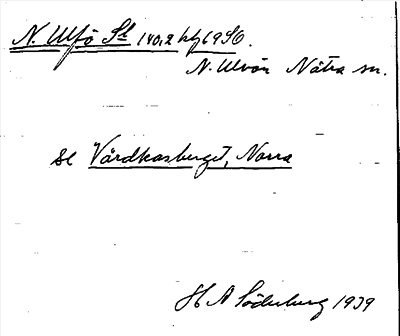 N. Ulfö St 140,2 kbf 69 SO.
N. Ulvön Nätra sn.
se Vårdkasberget, Norra
H A Söderberg 1939